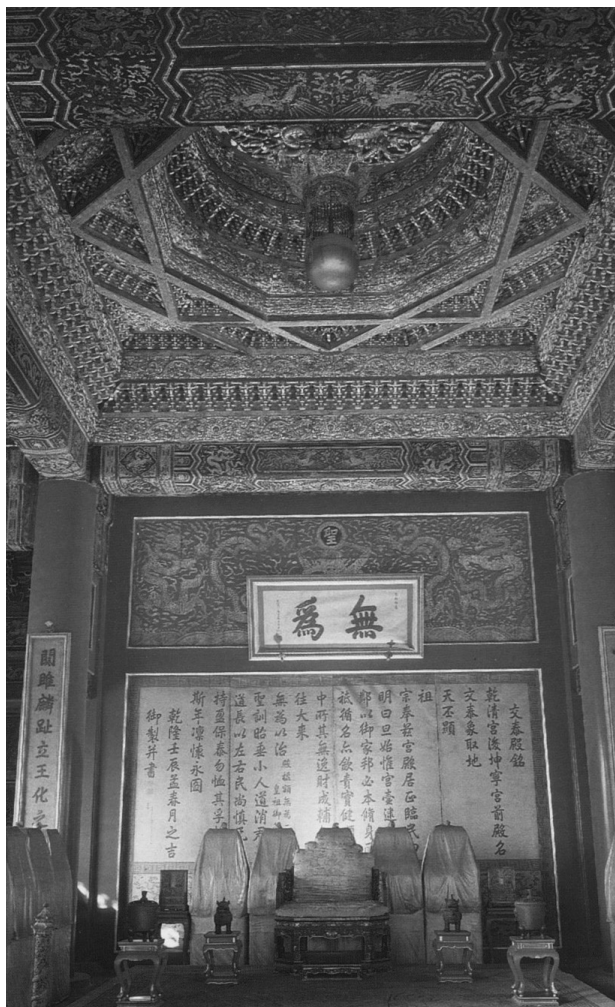 無爲
交泰殿銘
乾清宮後坤寧宮前殿名
交泰象取地
天丕顯
祖
宗奉茲宮殿居正臨民
明曰旦始惟宮壼建
以御家邦必本脩身
祗循名
責實健
中所其無逸財成輔
往大來
無爲以治
皇祖御
聖訓昭垂小人道消
道長以左右民尚慎
持盈保泰勿恤其孚
斯年凜懷永圖
乾隆壬辰孟春月之吉
御製并書
關雎麟趾立王化之